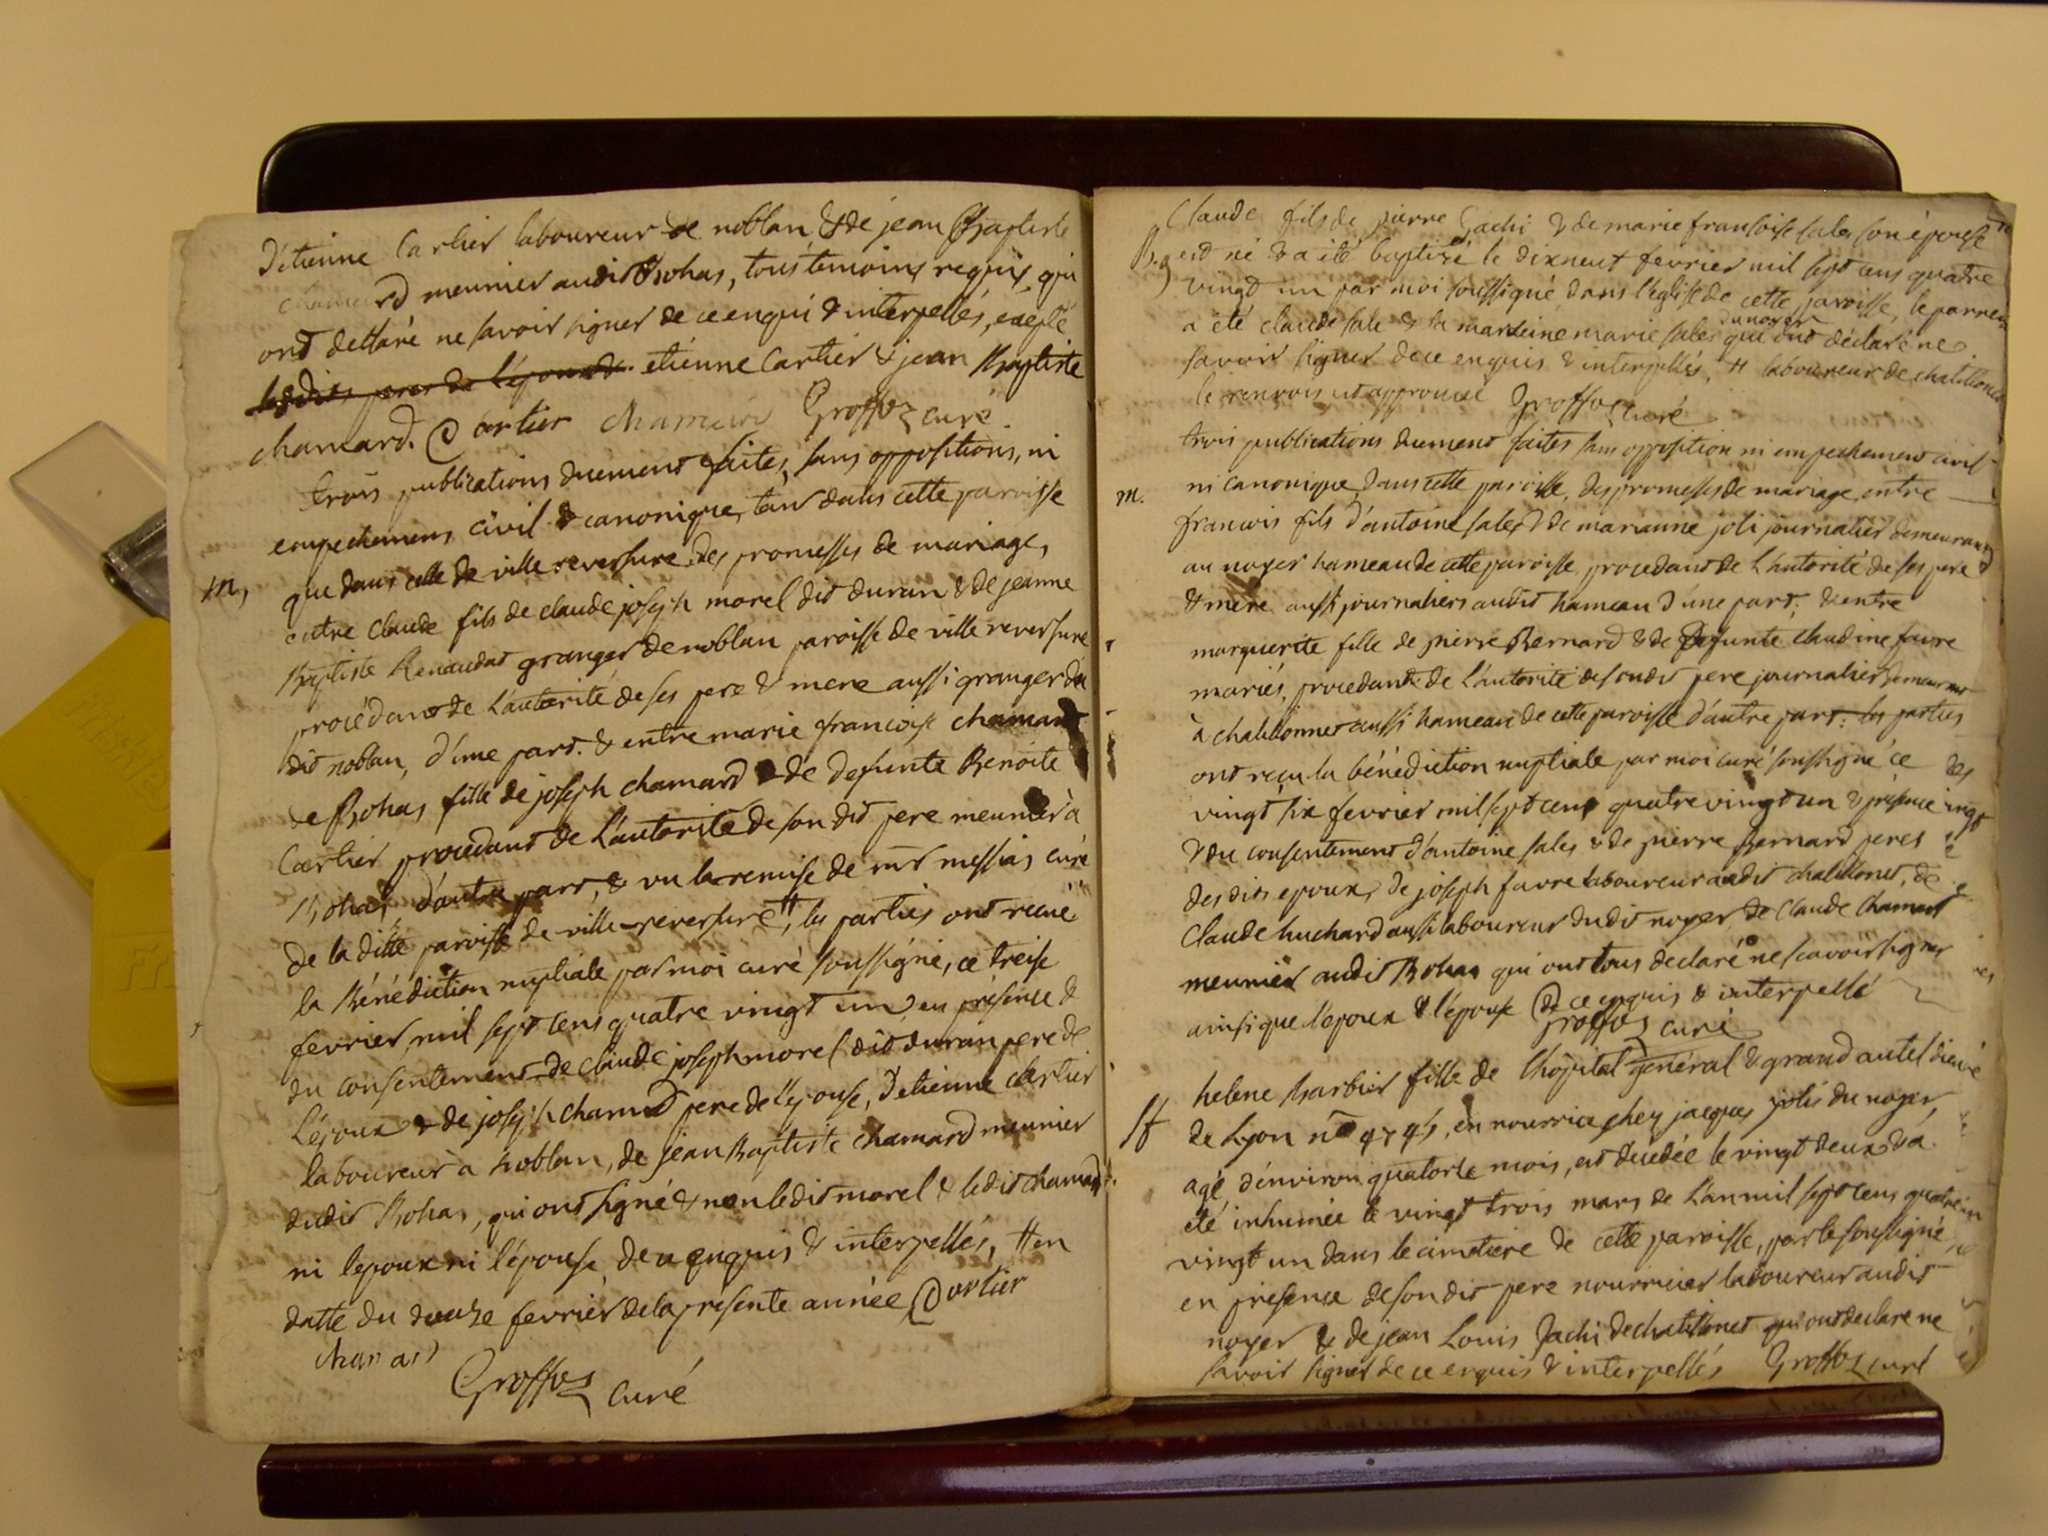 D'étienne Cartier laboureur de noblan & de jean Baptiste
chamard meunier audit Bohas, tous témoins requis qui
ont déclaré ne savoir signer de ce enquis & interpellés, éxepté
etienne Cartier & jean Baptiste
chamard. Cartier chamard Groffoz curé
trois publications duement faites, sans oppositions, ni
empechemens civil & canonique, tant dans cette paroisse
m, que dans celle de ville reversure des promesses de mariage,
entre Claude fils de claude joseph morel dit duran & de jeanne
Baptiste Renaudat granger de noblan paroisse de ville reversure
procédant de L'autorité de ses pere & mere aussi granger du
dit noblan, d'une part. & entre marie francoise chamard
de Bohas fille de joseph chamard & de defunte Benoite
Cartier procédant de L'autorité de son dit pere meunier à
Bohas, d'autre part, & vu la remise de mr messias curé
de la ditte paroisse de ville-reversure #, les parties ont recue
la Bénédiction nuptiale par moi curé soussigné, ce treise
fevrier mil sept cens quatre vingt un, en présence &
du consentement de claude joseph morel dit duran pere de
L'époux & de joseph chamard pere de l'epouse, D'etienne cartier
laboureur à noblan, de jean Baptiste chamard meunier
dudit Bohas, qui ont signé & non ledit morel & ledit chamard
ni lepoux ni l'épouse de ce enquis & interpellés, # en
datte du douze fevrier de la présente année Cartier
chamard
Groffoz curé
Claude fils de pierre Gachi & de marie francoise sales son épouse
B. est né & a été baptizé le dixneuf fevrier mil sept cens quatre
vingt un par moi soussigné dans l'eglise de cette paroisse, le parrein
du noyer
a été claude sale & la marreine marie sales qui ont déclaré ne
savoir signer de ce enquis & interpellés, # laboureur de chatillonet
le renvois est approuvé Groffoz curé
trois publications duement faites sans opposition ni empechement civil
m. ni canonique, dans cette paroisse, des promesses de mariage entre
francois fils d'antoine sales & de marianne joli journalier demeurant
au noyer hameau de cette paroisse procedant de L'autorité de ses pere
& mere aussi journaliers audit hameau d'une part. & entre
marguerite fille de pierre Bernard & de defunte claudine favre
mariés, procedant de L'autorité de sondit pere journalier demeurant
à chatillonnet aussi hameau de cette paroisse d'autre part: les parties
ont reçu la bénédiction nuptiale par moi curé soussigné ce
vingt six fevrier mil sept cens quatre vingt un & présence
& du consentement d'antoine sales & de pierre Bernard peres
des dits epoux, de joseph favre laboureur audit chatillonet, de
Claude huchard aussi laboureur dudit noyer de Claude Chamard
meunier audit Bohas qui ont tous declaré ne scavoir signer
ainsi que l'epoux & l'épouse de ce enquis & interpellé
Groffoz curé
helene barbier fille de l'hôpital général & grand autel dieu
st de Lyon no 4745, en nourrice chez jacques jolis du noyer,
agé d'environ quatorse mois, est décédée le vingt deux & a
été inhumée le vingt trois mars de L'an mil sept cens quatre
vingt un dans le cimetiere de cette paroisse, par le soussigné,
en presence de son dit pere nourricier laboureur audit
noyer & de jean Louis Jachi de chatillonet qui ont declare ne
savoir signer de ce enquis & interpellés Groffoz curé